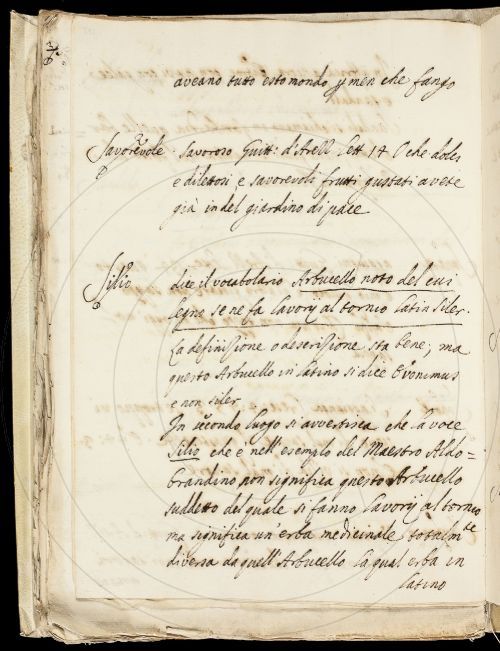 aveano tutto esto mondo p men che fango
Savorevole Savoroso Guitt: d'Arezz Lett 14 O che dolci
e dilettosi, e savorevoli frutti gustati avete
già in del giardino di pace
Silio dice il vocabolario Arbucello noto del cui
legno se ne fa lavorij al tornio latin Siler.
La definisione o descrisione sta bene; ma
questo Arbucello in latino si dice Evonimus
e non siler
In secondo luogo si avvertisca che la voce
Silio che è nell'esemplo del Maestro Aldo=
brandino non significa questo Arbucello
suddetto del quale si fanno lavorij al tornio
ma significa un'erba medicinale totalmte
diversa da quell'Arbucello la qual erba in
latino